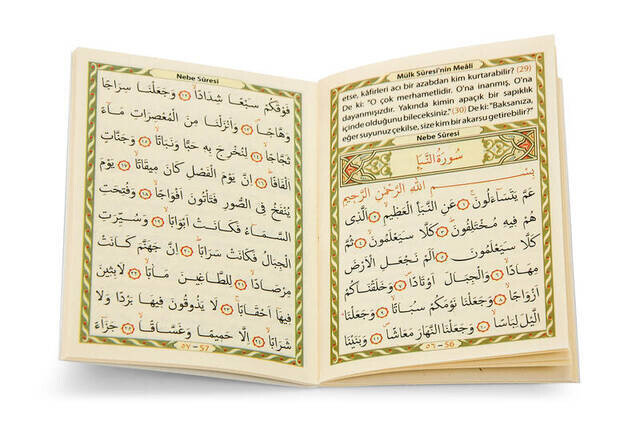 Mülk Sûresi'nin Meâli
etse, kâfirleri acı bir azabdan kim kurtarabilir? (29)
De ki: "O çok merhametlidir. O'na inanmış, O'na
dayanmışızdır. Yakında kimin apaçık bir sapıklık
içinde olduğunu bileceksiniz." (30) De ki: "Baksanıza,
eğer suyunuz çekilse, size kim bir akarsu getirebilir?"
Nebe Sûresi
سُورَةُ النَّبَإِ
بِسْمِ اللّٰهِ الرَّحْمٰنِ الرَّحِيمِ
عَمَّ يَتَسَاءَلُونَ ﴿١﴾ عَنِ النَّبَأِ الْعَظِيمِ ﴿٢﴾ اَلَّذِى
هُمْ فِيهِ مُخْتَلِفُونَ ﴿٣﴾ كَلَّا سَيَعْلَمُونَ ﴿٤﴾ ثُمَّ
كَلَّا سَيَعْلَمُونَ ﴿٥﴾ اَلَمْ نَجْعَلِ الْاَرْضَ
مِهَادًا ﴿٦﴾ وَالْجِبَالَ اَوْتَادًا ﴿٧﴾ وَخَلَقْنَاكُمْ
اَزْوَاجًا ﴿٨﴾ وَجَعَلْنَا نَوْمَكُمْ سُبَاتًا ﴿٩﴾ وَجَعَلْنَا
الَّيْلَ لِبَاسًا ﴿١٠﴾ وَجَعَلْنَا النَّهَارَ مَعَاشًا ﴿١١﴾ وَبَنَيْنَا
٥٦ – 56
Nebe Sûresi
فَوْقَكُمْ سَبْعًا شِدَادًا ﴿١٢﴾ وَجَعَلْنَا سِرَاجًا
وَهَّاجًا ﴿١٣﴾ وَاَنْزَلْنَا مِنَ الْمُعْصِرَاتِ مَاءً
ثَجَّاجًا ﴿١٤﴾ لِنُخْرِجَ بِهِ حَبًّا وَنَبَاتًا ﴿١٥﴾ وَجَنَّاتٍ
اَلْفَافًا ﴿١٦﴾ اِنَّ يَوْمَ الْفَصْلِ كَانَ مِيقَاتًا ﴿١٧﴾ يَوْمَ
يُنْفَخُ فِى الصُّورِ فَتَأْتُونَ اَفْوَاجًا ﴿١٨﴾ وَفُتِحَتِ
السَّمَاءُ فَكَانَتْ اَبْوَابًا ﴿١٩﴾ وَسُيِّرَتِ
الْجِبَالُ فَكَانَتْ سَرَابًا ﴿٢٠﴾ اِنَّ جَهَنَّمَ كَانَتْ
مِرْصَادًا ﴿٢١﴾ لِلطَّاغِينَ مَاٰبًا ﴿٢٢﴾ لَابِثِينَ
فِيهَا اَحْقَابًا ﴿٢٣﴾ لَا يَذُوقُونَ فِيهَا بَرْدًا وَلَا
شَرَابًا ﴿٢٤﴾ اِلَّا حَمِيمًا وَغَسَّاقًا ﴿٢٥﴾ جَزَاءً
٥٧ – 57